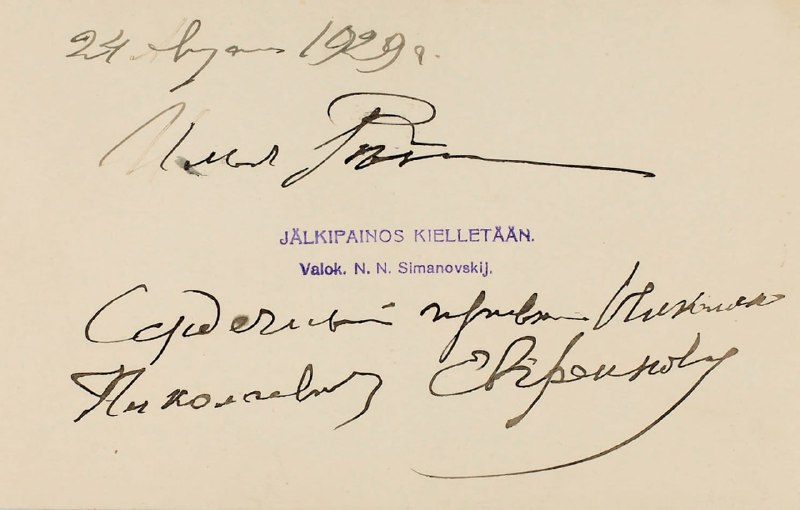 24 Августа 1929 г.
Илья Репин
JÄLKIPAINOS KIELLETÄÄN.
Valok. N. N. Simanovskij.
Сердечный привет Николаю
Николаевичу Евреинову